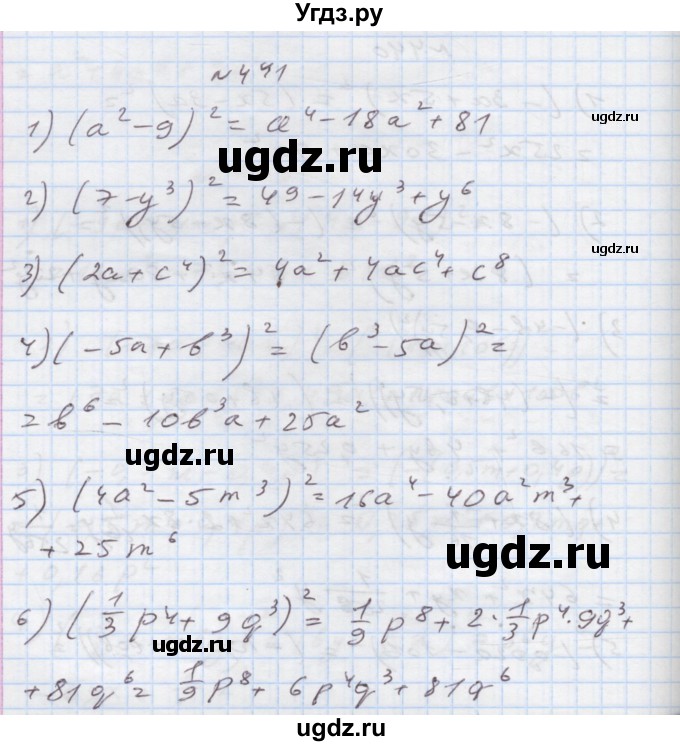 Угдз.ру
№441
1) (a² - 9)² = a⁴ - 18a² + 81
ugdz.ru
ugdz.ru
2) (7 - y³)² = 49 - 14y³ + y⁶
ugdz.ru
3) (2a + c⁴)² = 4a² + 4ac⁴ + c⁸
4) (-5a + b³)² = (b³ - 5a)² =
= b⁶ - 10b³a + 25a²
ugdz.ru
5) (4a² - 5m³)² = 16a⁴ - 40a²m³ +
+ 25m⁶
ugdz.ru
6) (1/3 p⁴ + 9q³)² = 1/9 p⁸ + 2 · 1/3 p⁴ · 9q³ +
ugdz.ru
+ 81q⁶ = 1/9 p⁸ + 6p⁴q³ + 81q⁶
ugdz.ru